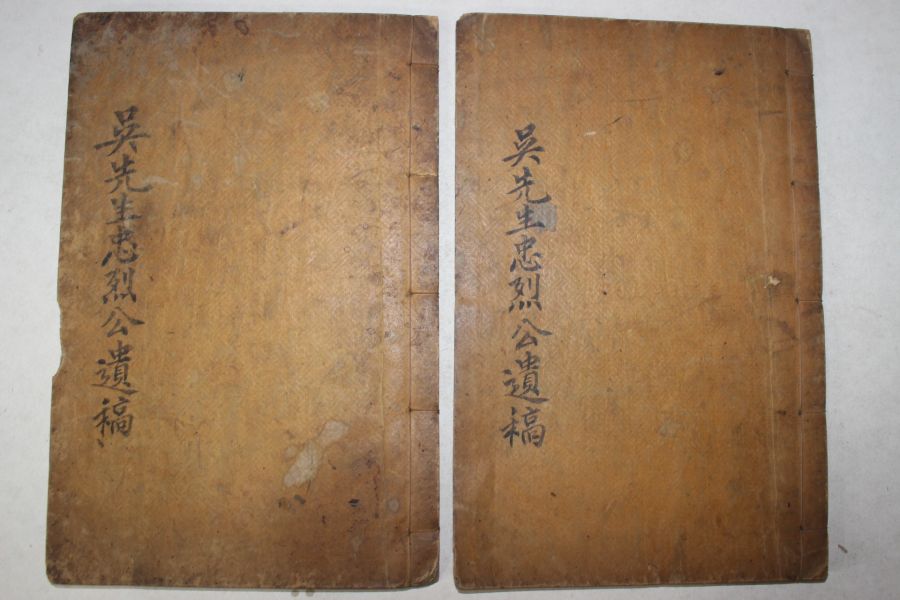 吳先生忠烈公遺稿
吳先生忠烈公遺稿